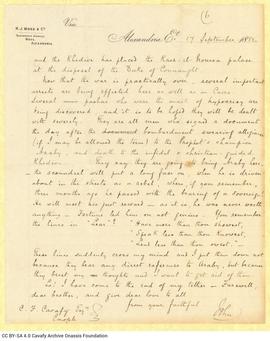 (6
R. J. MOSS & Co.
ALEXANDRIA
Alexandria, 17 September 1882
and the Khedive has placed the Ras-el-Teen palace
at the disposal of the Duke of Connaught.
Now that the war is practically over, several important
arrests are being effected here as well as in Cairo.
Several pashas who wore the mask of hypocrisy are
being discovered and it is to be hoped they will be dealt
with severely. They are all men who signed a document
the day after the bombardment swearing allegiance
(if I may be allowed the term) to the Prophet's champion
Araby, and death to the infidel & christian-guided
Khedive. They say they are going to bring Araby here
the scoundrel will put a long face on when he is driven
about in the streets as a rebel where, if you remember,
three months ago he passed with the bearing of a sovereign.
He will meet his just reward - as it is he was never
anything - Fortune led him on not genius. You remember
the lines in "Lear":
"Have more than thou showest,
"Speak less than thou knowest,
"Lend less than thou owest."
These lines suddenly cross my mind and I put them down not
because they bear any direct reference to Araby, but because
they beset my thoughts and I want to get rid of them.
I have come to the end of my tether - Farewell,
dear brother, and give dear love to all
from your faithful
John
C. P. Cavafy Esq.
CC BY-SA 4.0 Cavafy Archive Onassis Foundation